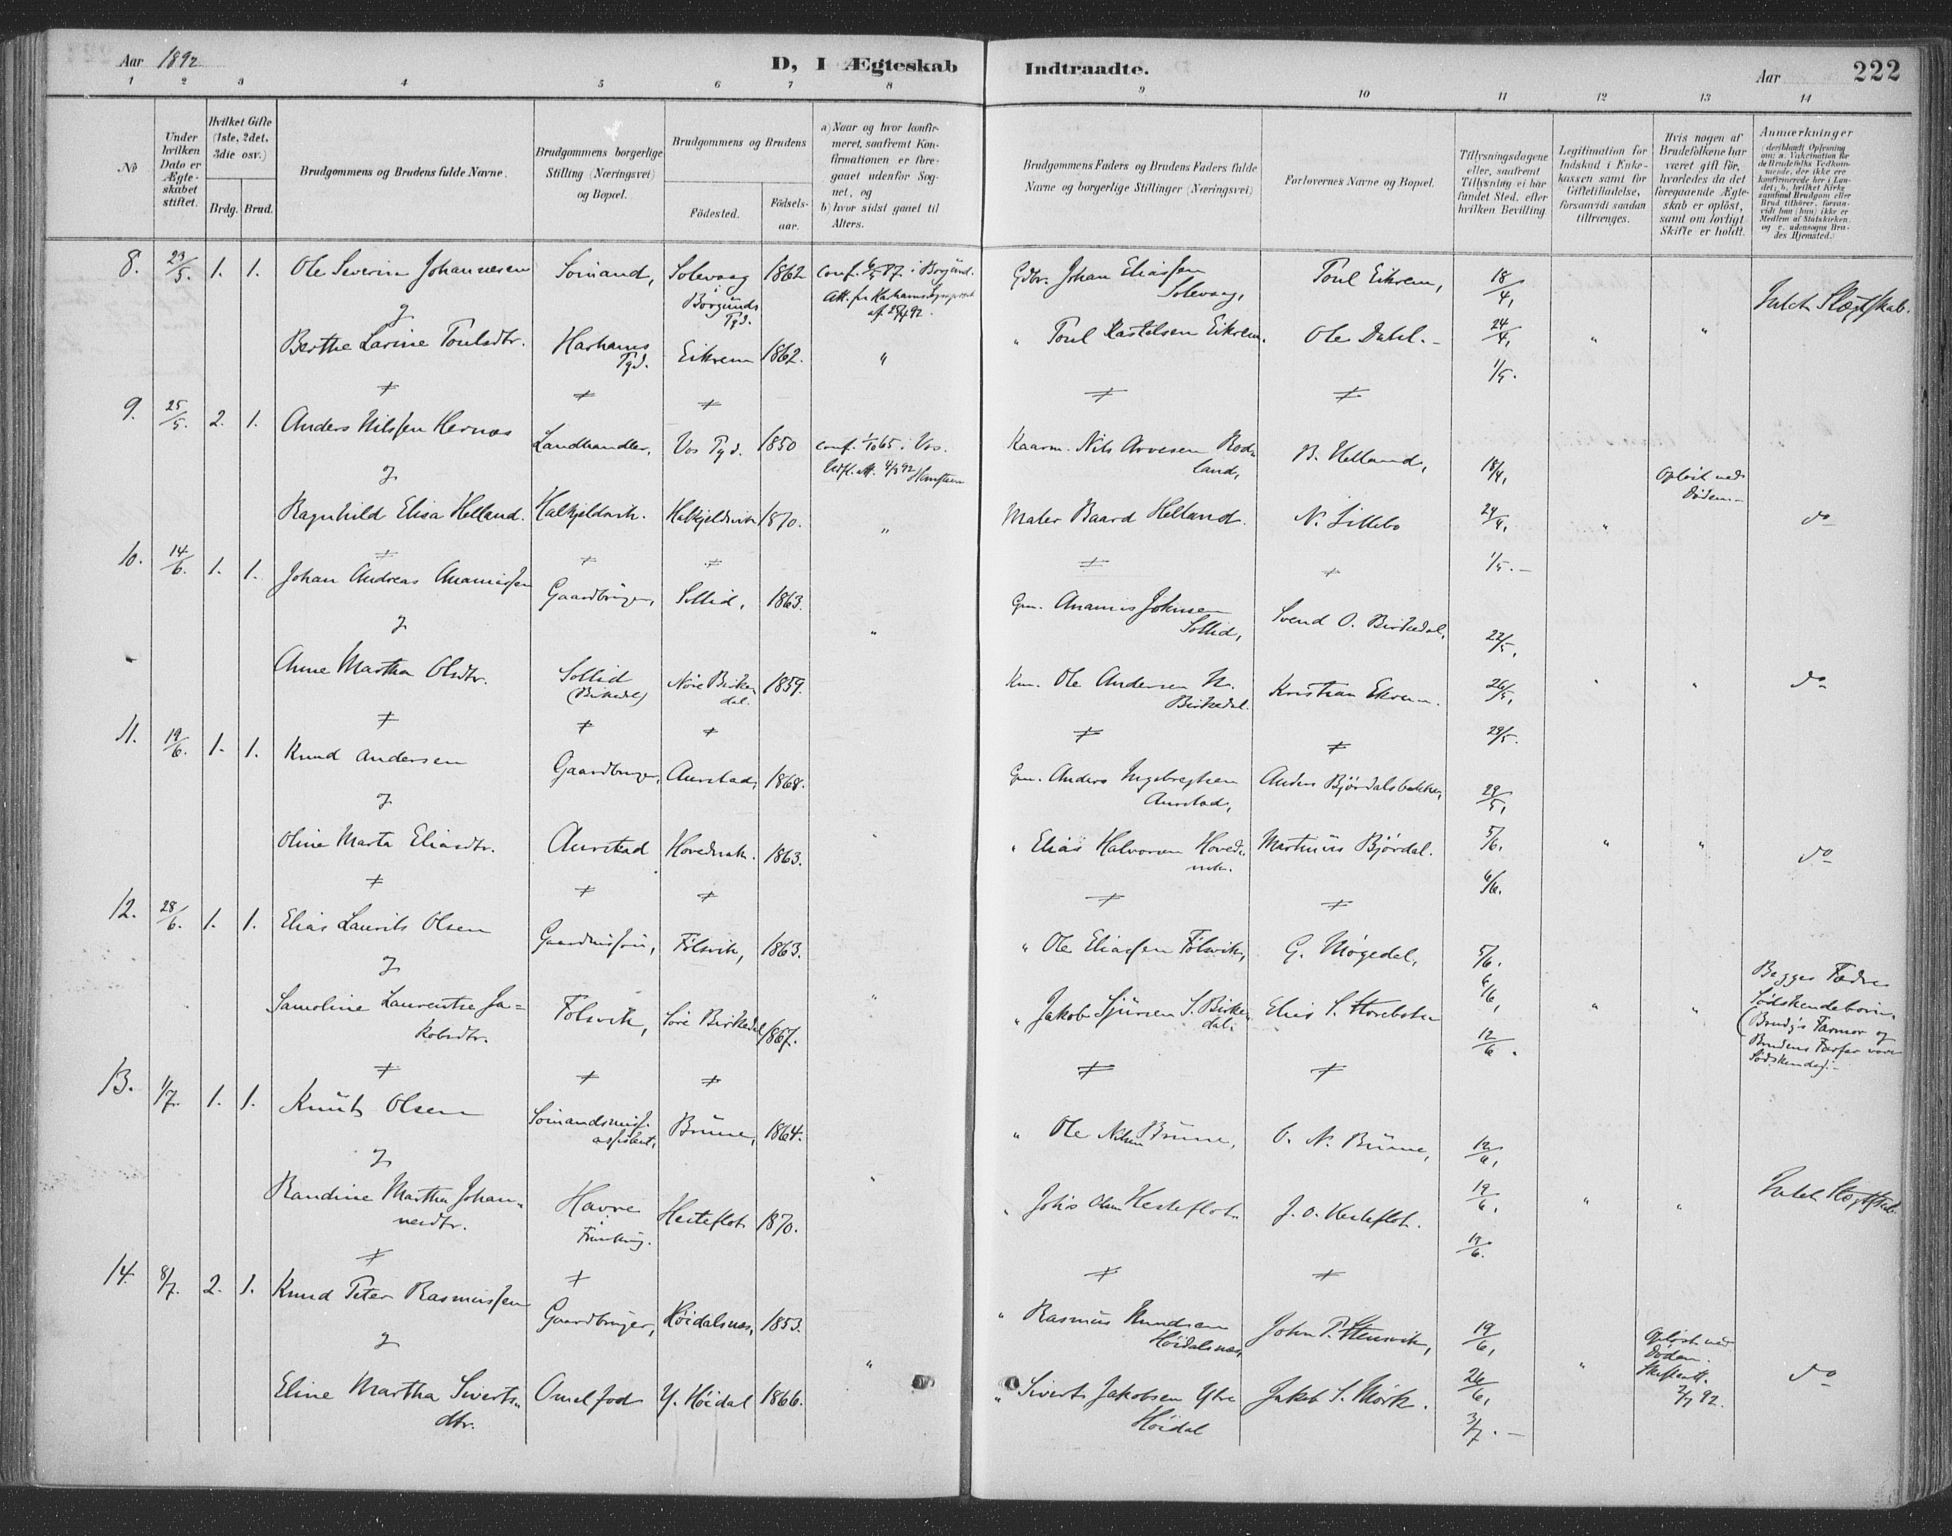 Aar 1892
D, I Ægteskab Indtraadte.
Aar
222
1 2 3 4 5 6 7 8 9 10 11 12 13 14
No
Under hvilken Dato er Ægteskabet stiftet.
Hvilket Gifte (1ste, 2det, 3die osv.)
Brdg. Brud.
Brudgommens og Brudens fulde Navne.
Brudgommens borgerlige Stilling (Næringsvei) og Bopæl.
Brudgommens og Brudens
Fødested.
Fødselsaar.
a) Naar og hvor konfirmeret, saafremt Konfirmationen er foregaaet udenfor Sognet, og
b) hvor sidst gaaet til Alters.
Brudgommens Faders og Brudens Faders fulde Navne og borgerlige Stillinger (Næringsvei)
Forlovernes Navne og Bopæl.
Tillysningsdagene eller, saafremt Tillysning ei har fundet Sted, efter hvilken Bevilling
Legitimation for Indskud i Enkekassen samt for Giftetilladelse, forsaavidt saadan tiltrænges.
Hvis nogen af Brudefolkene har været gift før, hvorledes da det foregaaende Ægteskab er opløst, samt om lovligt Skifte er holdt.
Anmærkninger
8. 23/5. 1. 1. Ole Severin Johannesen Sømand, Solevaag i Borgunds Pgd. 1862 conf. i Borgund.
Gdbr. Johan Eliassen Solevaag, Poul Eikrem, 18/4,
Intet Slægtskab.
g
Berthe Larine Poulsdtr. Harhams Pgd. Eikrem 1862. "
" Poul Rastelsen Eikrem. Ole Dahl.- 24/4, " "
1/5.
9. 25/5. 2. 1. Anders Nilssen Hernæs Landhandler, Vos Pgd. 1850 conf. 1/10 65 i Vos.
Kaarm. Nils Arvesen Rodland, B. Helland, 18/4, Opløst ved Døden-
g
Ragnhild Elisa Helland. Halkjeldsvik. Halkjeldsvik 1870. "
Maler Baard Helland. N. Lillebø 24/4, " do
1/5.-
10. 14/6. 1. 1. Johan Andreas Ananiassen Gaardbruger, Sollid, 1863.
Gm. Ananias Johnsen Sollid, Svend O. Birkedal, 22/5,
g "
Anne Martha Olsdtr. Sollid (Birkedal) Nore Birkedal. 1859.
Km. Ole Andersen N. Birkedal. Kristian Ekrem. 26/5, " " do
29/5.
11. 19/6. 1. 1. Knud Andersen Gaardbruger, Aurstad, 1868.
Gm. Anders Ingebregtsen Aurstad, Anders Bjørdalsbakke, 29/5,
g
Oline Marta Eliasdtr. Aurstad Hovdenak. 1863. "
" Elias Halvorsen Hovdenak. Martinus Bjørdal. 5/6. " " do
6/6.
12. 28/6. 1. 1. Elias Laurits Olsen Følsvik, 1863.
" Ole Eliassen Følsvik, G. Møgedal, 5/6.
g
Samoline Laurentse Jakobsdtr. Følsvik, Søre Birkedal 1867. "
" Jakob Sjursen S. Birkedal. Elias S. Storebø 6/6, " "
12/6.
Begges Fædre Sødskendebørn. (Brudg's Farmor og Brudens Farfar vare Sødskende).-
13. 1/7. 1. 1. Knut Olsen Sømandsmiss. assistent, Brune, 1864.
" Ole Nilsen Brune, O. N. Brune, 12/6,
g
Randine Martha Johannesdtr. Havre i Frankrig. Hesteflot 1870. "
" Johs Olsen Hesteflot. J. O. Hesteflot. 19/6. " " Intet Slægtskab.
19/6.
14. 8/7. 2. 1. Knud Peter Rasmussen Gaardbruger, Høidalsnæs, 1853.
" Rasmus Knudsen Høidalsnæs, John P. Stensvik, 19/6, Opløst ved Døden. Skifteatt. 2/7 92.
g
Eline Martha Sivertsdtr. Y. Høidal 1866. "
" Sivert Jakobsen Ytre Høidal Jakob S. Mørk. 26/6, " do
3/7.-